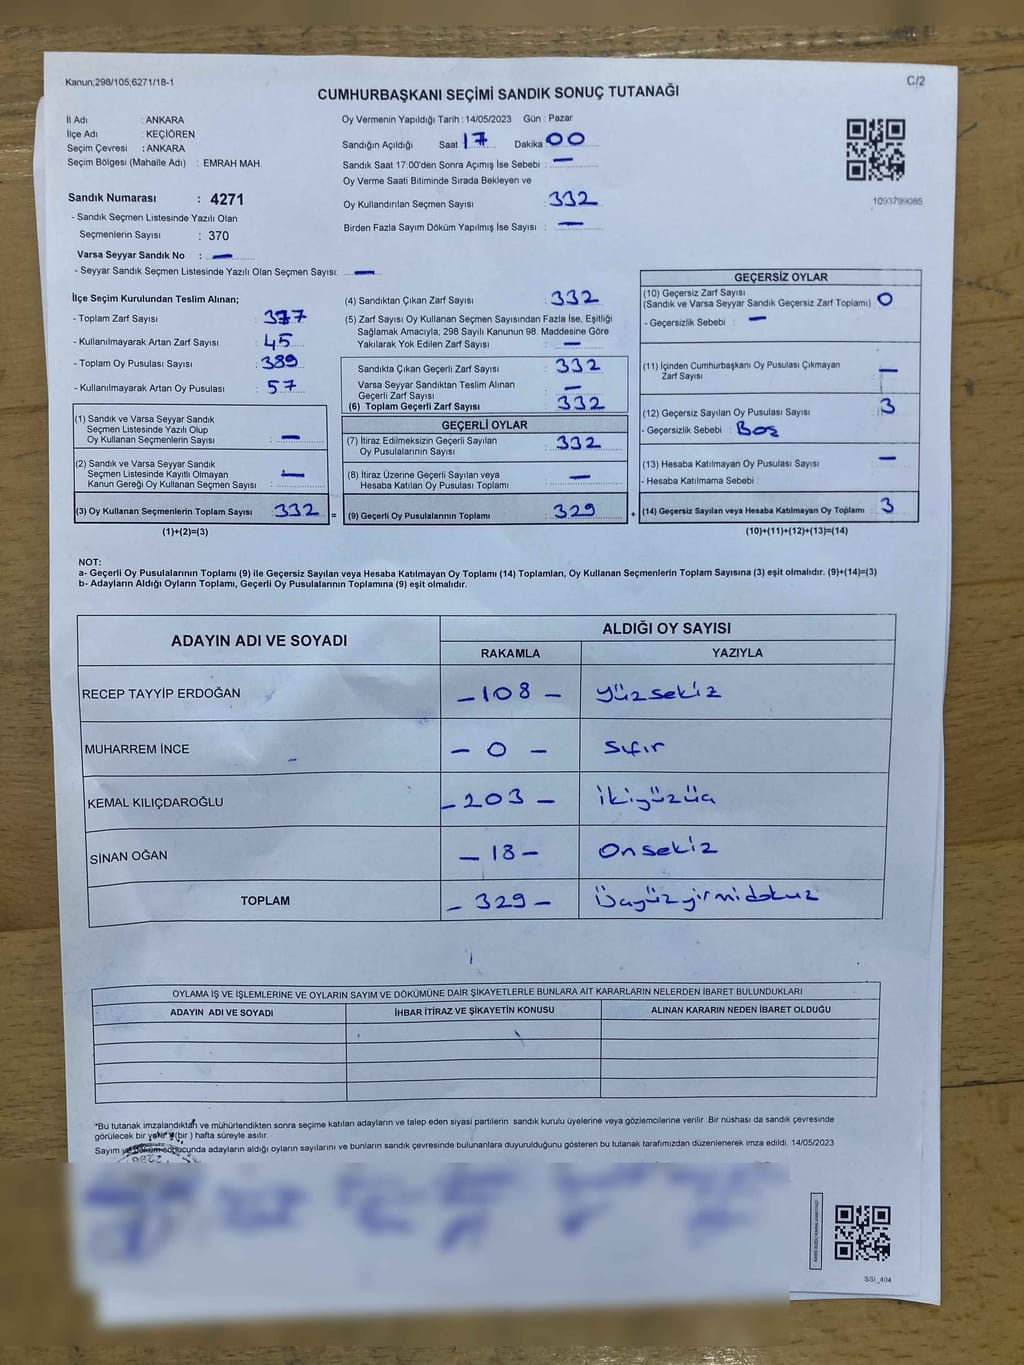 Kanun;298/105;6271/18-1
C/2
CUMHURBAŞKANI SEÇİMİ SANDIK SONUÇ TUTANAĞI
İl Adı : ANKARA
İlçe Adı : KEÇİÖREN
Seçim Çevresi : ANKARA
Seçim Bölgesi (Mahalle Adı) : EMRAH MAH.
Sandık Numarası : 4271
- Sandık Seçmen Listesinde Yazılı Olan
Seçmenlerin Sayısı : 370
Varsa Seyyar Sandık No : —
- Seyyar Sandık Seçmen Listesinde Yazılı Olan Seçmen Sayısı: —
Oy Vermenin Yapıldığı Tarih : 14/05/2023 Gün : Pazar
Sandığın Açıldığı Saat 17 Dakika 00
Sandık Saat 17:00'den Sonra Açımış İse Sebebi : —
Oy Verme Saati Bitiminde Sırada Bekleyen ve
Oy Kullandırılan Seçmen Sayısı : 332
Birden Fazla Sayım Döküm Yapılmış İse Sayısı : —
1093799085
İlçe Seçim Kurulundan Teslim Alınan;
- Toplam Zarf Sayısı : 377
- Kullanılmayarak Artan Zarf Sayısı : 45
- Toplam Oy Pusulası Sayısı : 389
- Kullanılmayarak Artan Oy Pusulası : 57
(1) Sandık ve Varsa Seyyar Sandık
Seçmen Listesinde Yazılı Olup
Oy Kullanan Seçmenlerin Sayısı : —
(2) Sandık ve Varsa Seyyar Sandık
Seçmen Listesinde Kayıtlı Olmayan
Kanun Gereği Oy Kullanan Seçmen Sayısı : —
(3) Oy Kullanan Seçmenlerin Toplam Sayısı : 332 =
(1)+(2)=(3)
(4) Sandıktan Çıkan Zarf Sayısı : 332
(5) Zarf Sayısı Oy Kullanan Seçmen Sayısından Fazla İse, Eşitliği
Sağlamak Amacıyla; 298 Sayılı Kanunun 98. Maddesine Göre
Yakılarak Yok Edilen Zarf Sayısı : —
Sandıkta Çıkan Geçerli Zarf Sayısı : 332
Varsa Seyyar Sandıktan Teslim Alınan
Geçerli Zarf Sayısı : —
(6) Toplam Geçerli Zarf Sayısı : 332
GEÇERLİ OYLAR
(7) İtiraz Edilmeksizin Geçerli Sayılan
Oy Pusulalarının Sayısı : 332
(8) İtiraz Üzerine Geçerli Sayılan veya
Hesaba Katılan Oy Pusulası Toplamı : —
(9) Geçerli Oy Pusulalarının Toplamı : 329 +
GEÇERSİZ OYLAR
(10) Geçersiz Zarf Sayısı
(Sandık ve Varsa Seyyar Sandık Geçersiz Zarf Toplamı) : 0
- Geçersizlik Sebebi : —
(11) İçinden Cumhurbaşkanı Oy Pusulası Çıkmayan
Zarf Sayısı : —
(12) Geçersiz Sayılan Oy Pusulası Sayısı : 3
- Geçersizlik Sebebi : Boş
(13) Hesaba Katılmayan Oy Pusulası Sayısı : —
- Hesaba Katılmama Sebebi :
(14) Geçersiz Sayılan veya Hesaba Katılmayan Oy Toplamı : 3
(10)+(11)+(12)+(13)=(14)
NOT:
a- Geçerli Oy Pusulalarının Toplamı (9) ile Geçersiz Sayılan veya Hesaba Katılmayan Oy Toplamı (14) Toplamları, Oy Kullanan Seçmenlerin Toplam Sayısına (3) eşit olmalıdır. (9)+(14)=(3)
b- Adayların Aldığı Oyların Toplamı, Geçerli Oy Pusulalarının Toplamına (9) eşit olmalıdır.
ADAYIN ADI VE SOYADI ALDIĞI OY SAYISI
RAKAMLA YAZIYLA
RECEP TAYYİP ERDOĞAN – 108 – Yüzsekiz
MUHARREM İNCE – 0 – Sıfır
KEMAL KILIÇDAROĞLU – 203 – ikiyüzüç
SİNAN OĞAN – 18 – Onsekiz
TOPLAM – 329 – Üçyüzyirmidokuz
OYLAMA İŞ VE İŞLEMLERİNE VE OYLARIN SAYIM VE DÖKÜMÜNE DAİR ŞİKAYETLERLE BUNLARA AİT KARARLARIN NELERDEN İBARET BULUNDUKLARI
ADAYIN ADI VE SOYADI İHBAR İTİRAZ VE ŞİKAYETİN KONUSU ALINAN KARARIN NEDEN İBARET OLDUĞU
*Bu tutanak imzalandıktan ve mühürlendikten sonra seçime katılan adayların ve talep eden siyasi partilerin sandık kurulu üyelerine veya gözlemcilerine verilir .Bir nüshası da sandık çevresinde
görülecek bir yere (bir ) hafta süreyle asılır.
Sayım ve döküm sonucunda adayların aldığı oyların sayılarını ve bunların sandık çevresinde bulunanlara duyurulduğunu gösteren bu tutanak tarafımızdan düzenlenerek imza edildi. 14/05/2023
SSI_404